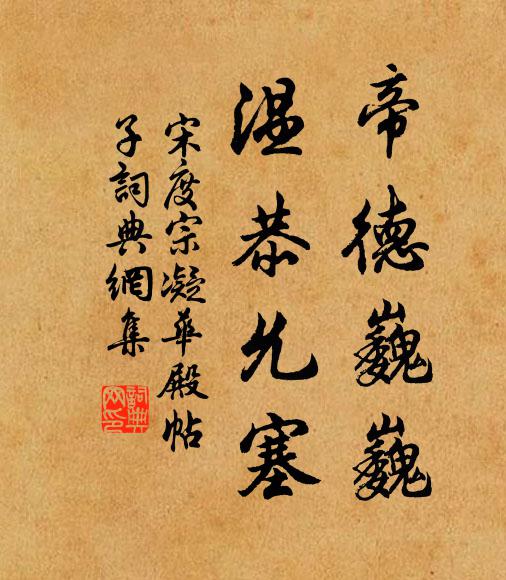 帝德巍巍
温恭允塞
宋度宗凝華殿帖
子詞典網集
詞典网印